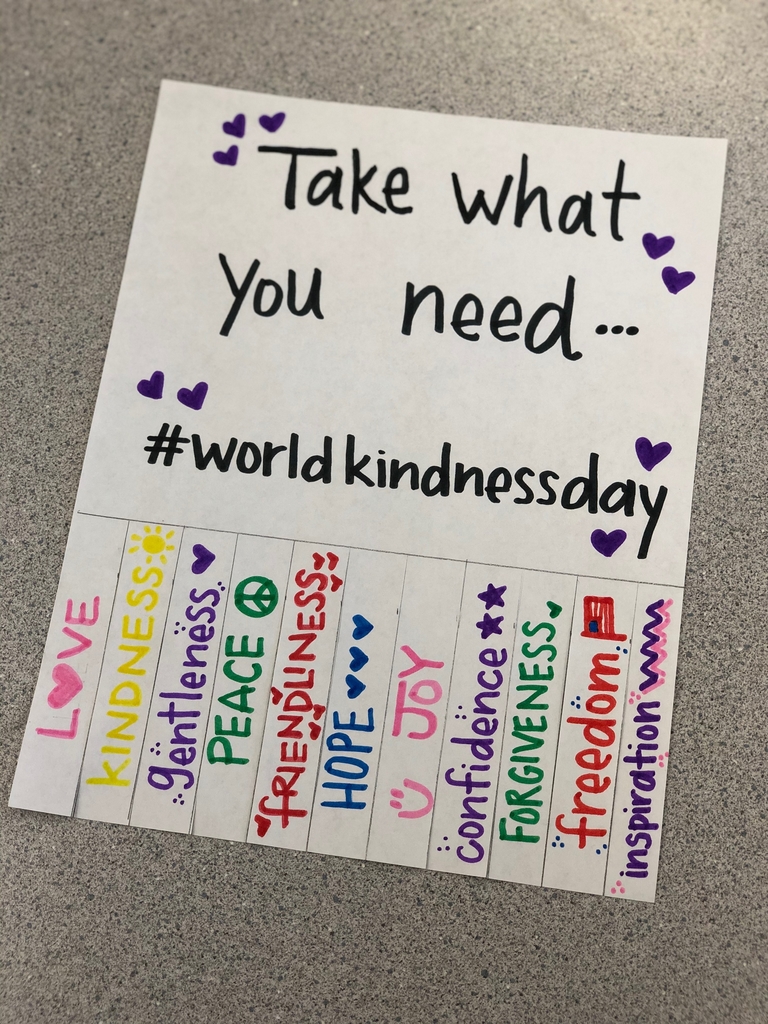 Take what
you need...
#worldkindnessday
LOVE
KINDNESS
gentleness
PEACE
fRIENDLINESS
HOPE
JOY
confidence
FORGIVENESS
freedom
inspiration